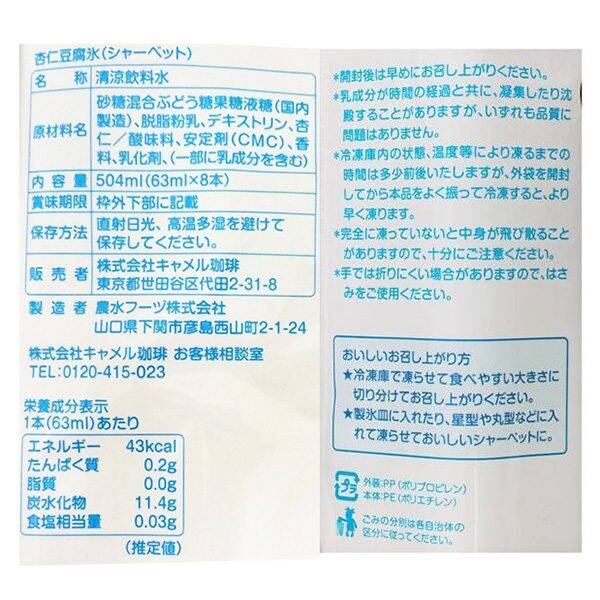 杏仁豆腐氷(シャーベット)
名称 清涼飲料水
原材料名 砂糖混合ぶどう糖果糖液糖(国内
製造)、脱脂粉乳、デキストリン、杏
仁/酸味料、安定剤(CMC)、香
料、乳化剤、(一部に乳成分を含む)
内容量 504ml(63ml×8本)
賞味期限 枠外下部に記載
保存方法 直射日光、高温多湿を避けて
保存してください。
販売者 株式会社キャメル珈琲
東京都世田谷区代田2-31-8
製造者 農水フーヅ株式会社
山口県下関市彦島西山町2-1-24
株式会社キャメル珈琲 お客様相談室
TEL:0120-415-023
栄養成分表示
1本(63ml)あたり
エネルギー 43kcal
たんぱく質 0.2g
脂質 0.0g
炭水化物 11.4g
食塩相当量 0.03g
(推定値)
*開封後は早めにお召し上がりください。
*乳成分が時間の経過と共に、凝集したり沈
殿することがありますが、いずれも品質に
問題はありません。
*冷凍庫内の状態、温度等により凍るまでの
時間は多少前後いたしますが、外袋を開封
してから本品をよく振って冷凍すると、より
早く凍ります。
*完全に凍っていないと中身が飛び散ること
がありますので、十分にご注意ください。
*手では折りにくい場合がありますので、はさ
みをご使用ください。
おいしいお召し上がり方
★冷凍庫で凍らせて食べやすい大きさに
切り分けてお召し上がりください。
★製氷皿に入れたり、星型や丸型などに入
れて凍らせておいしいシャーベットに。
プラ
外装:PP(ポリプロピレン)
本体:PE(ポリエチレン)
ごみの分別は各自治体の
区分に従ってください。